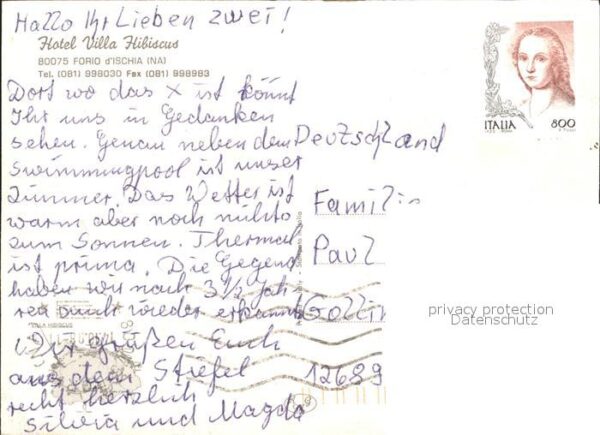 Hallo Ihr Lieben zwei!
Hotel Villa Hibiscus
80075 FORIO d'ISCHIA (NA)
Tel. (081) 998030 Fax (081) 998983
Dort wo das x ist könnt
Ihr uns in Gedanken
sehen. Genau neben dem
Swimmingpool ist unser
Zimmer. Das Wetter ist
warm aber noch nichts
zum Sonnen. Thermal
ist prima. Die Gegend
haben wir nach 3 1/2 Jah
ren auch wieder erkannt
Wir grüßen Euch
aus dem Stiefel
recht herzlich
Silvia und Magda
ITALIA 800
Deutschland
Familie
Paul
Gollin
12689
VILLA HIBISCUS
privacy protection
Datenschutz